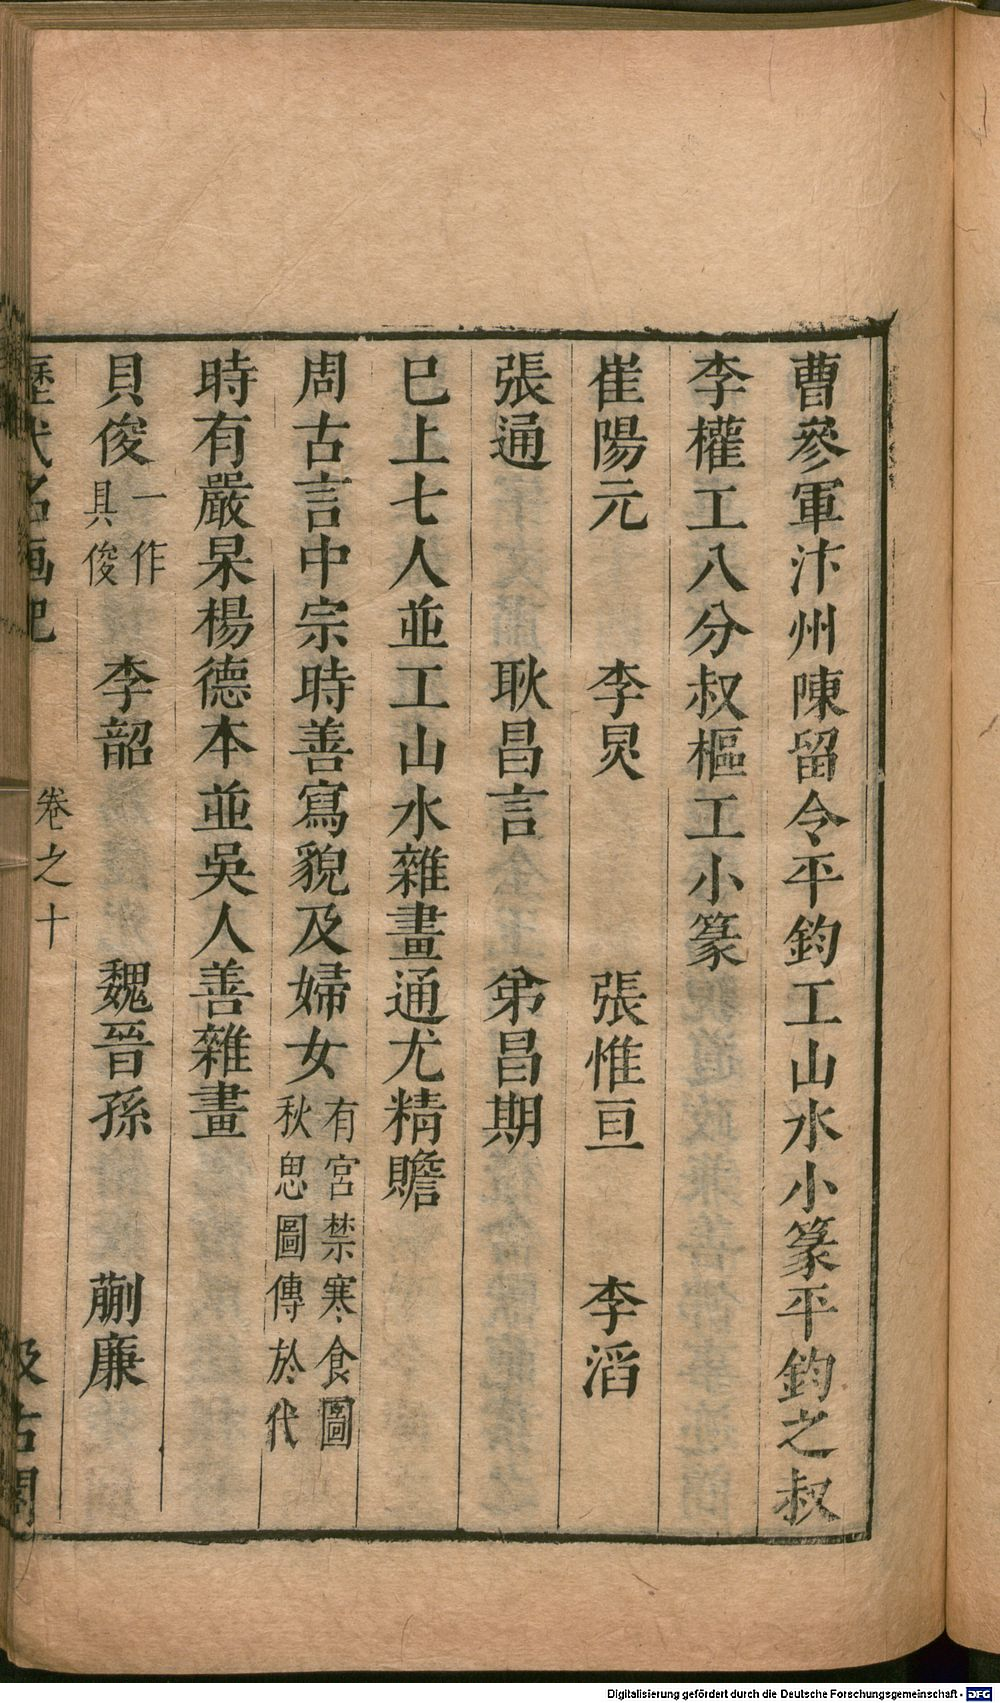 曹參軍汴州陳留令平鈞工山水小篆平鈞之叔
李權工八分叔樞工小篆
崔陽元 李炅 張惟亘 李滔
張通 耿昌言 弟昌期
巳上七人並工山水雜畫通尤精贍
周古言中宗時善寫貌及婦女有宮禁寒食圖秋思圖傳於代
時有嚴杲楊德本並吳人善雜畫
貝俊一作具俊 李韶 魏晉孫 蒯廉
歷代名画記 卷之十 汲古閣
Digitalisierung gefördert durch die Deutsche Forschungsgemeinschaft - DFG